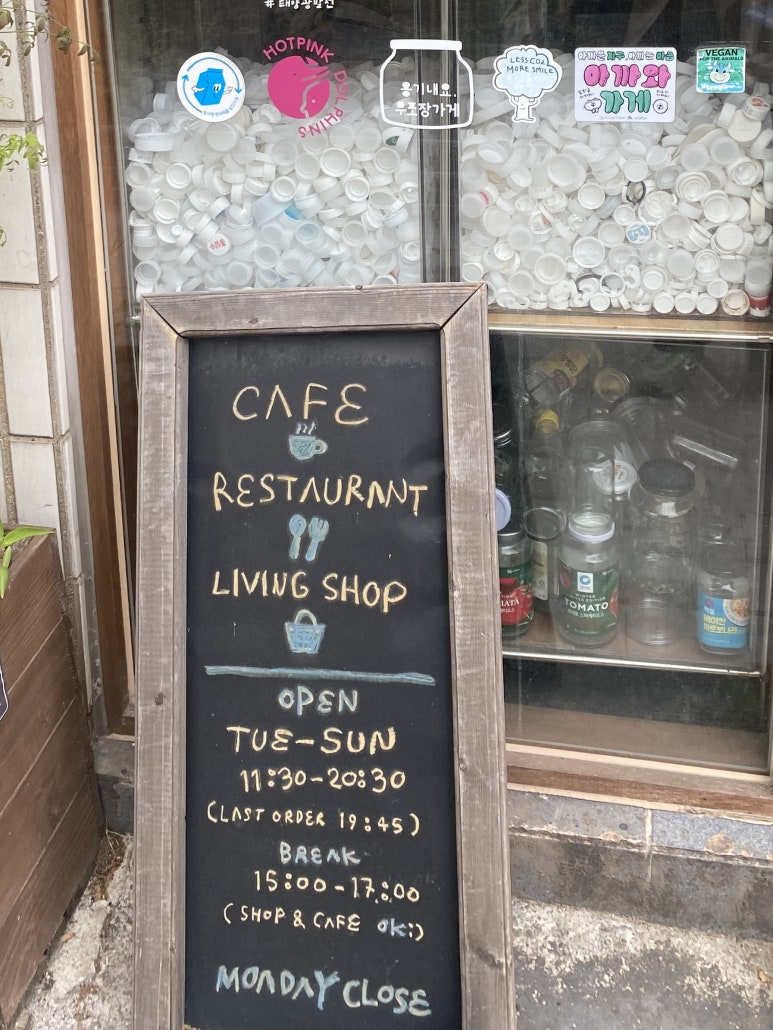 #태양광발전
HOTPINK DOLPHINS
용기내요,
우포장가게
LESS CO2
MORE SMILE
아까운 지구, 아끼는 마음
아까와
가게
VEGAN
FOR THE ANIMALS
CAFE
RESTAURANT
LIVING SHOP
OPEN
TUE-SUN
11:30-20:30
(LAST ORDER 19:45)
BREAK
15:00-17:00
(SHOP & CAFE OK:)
MONDAY CLOSE
WINTER
EDITION
TOMATO